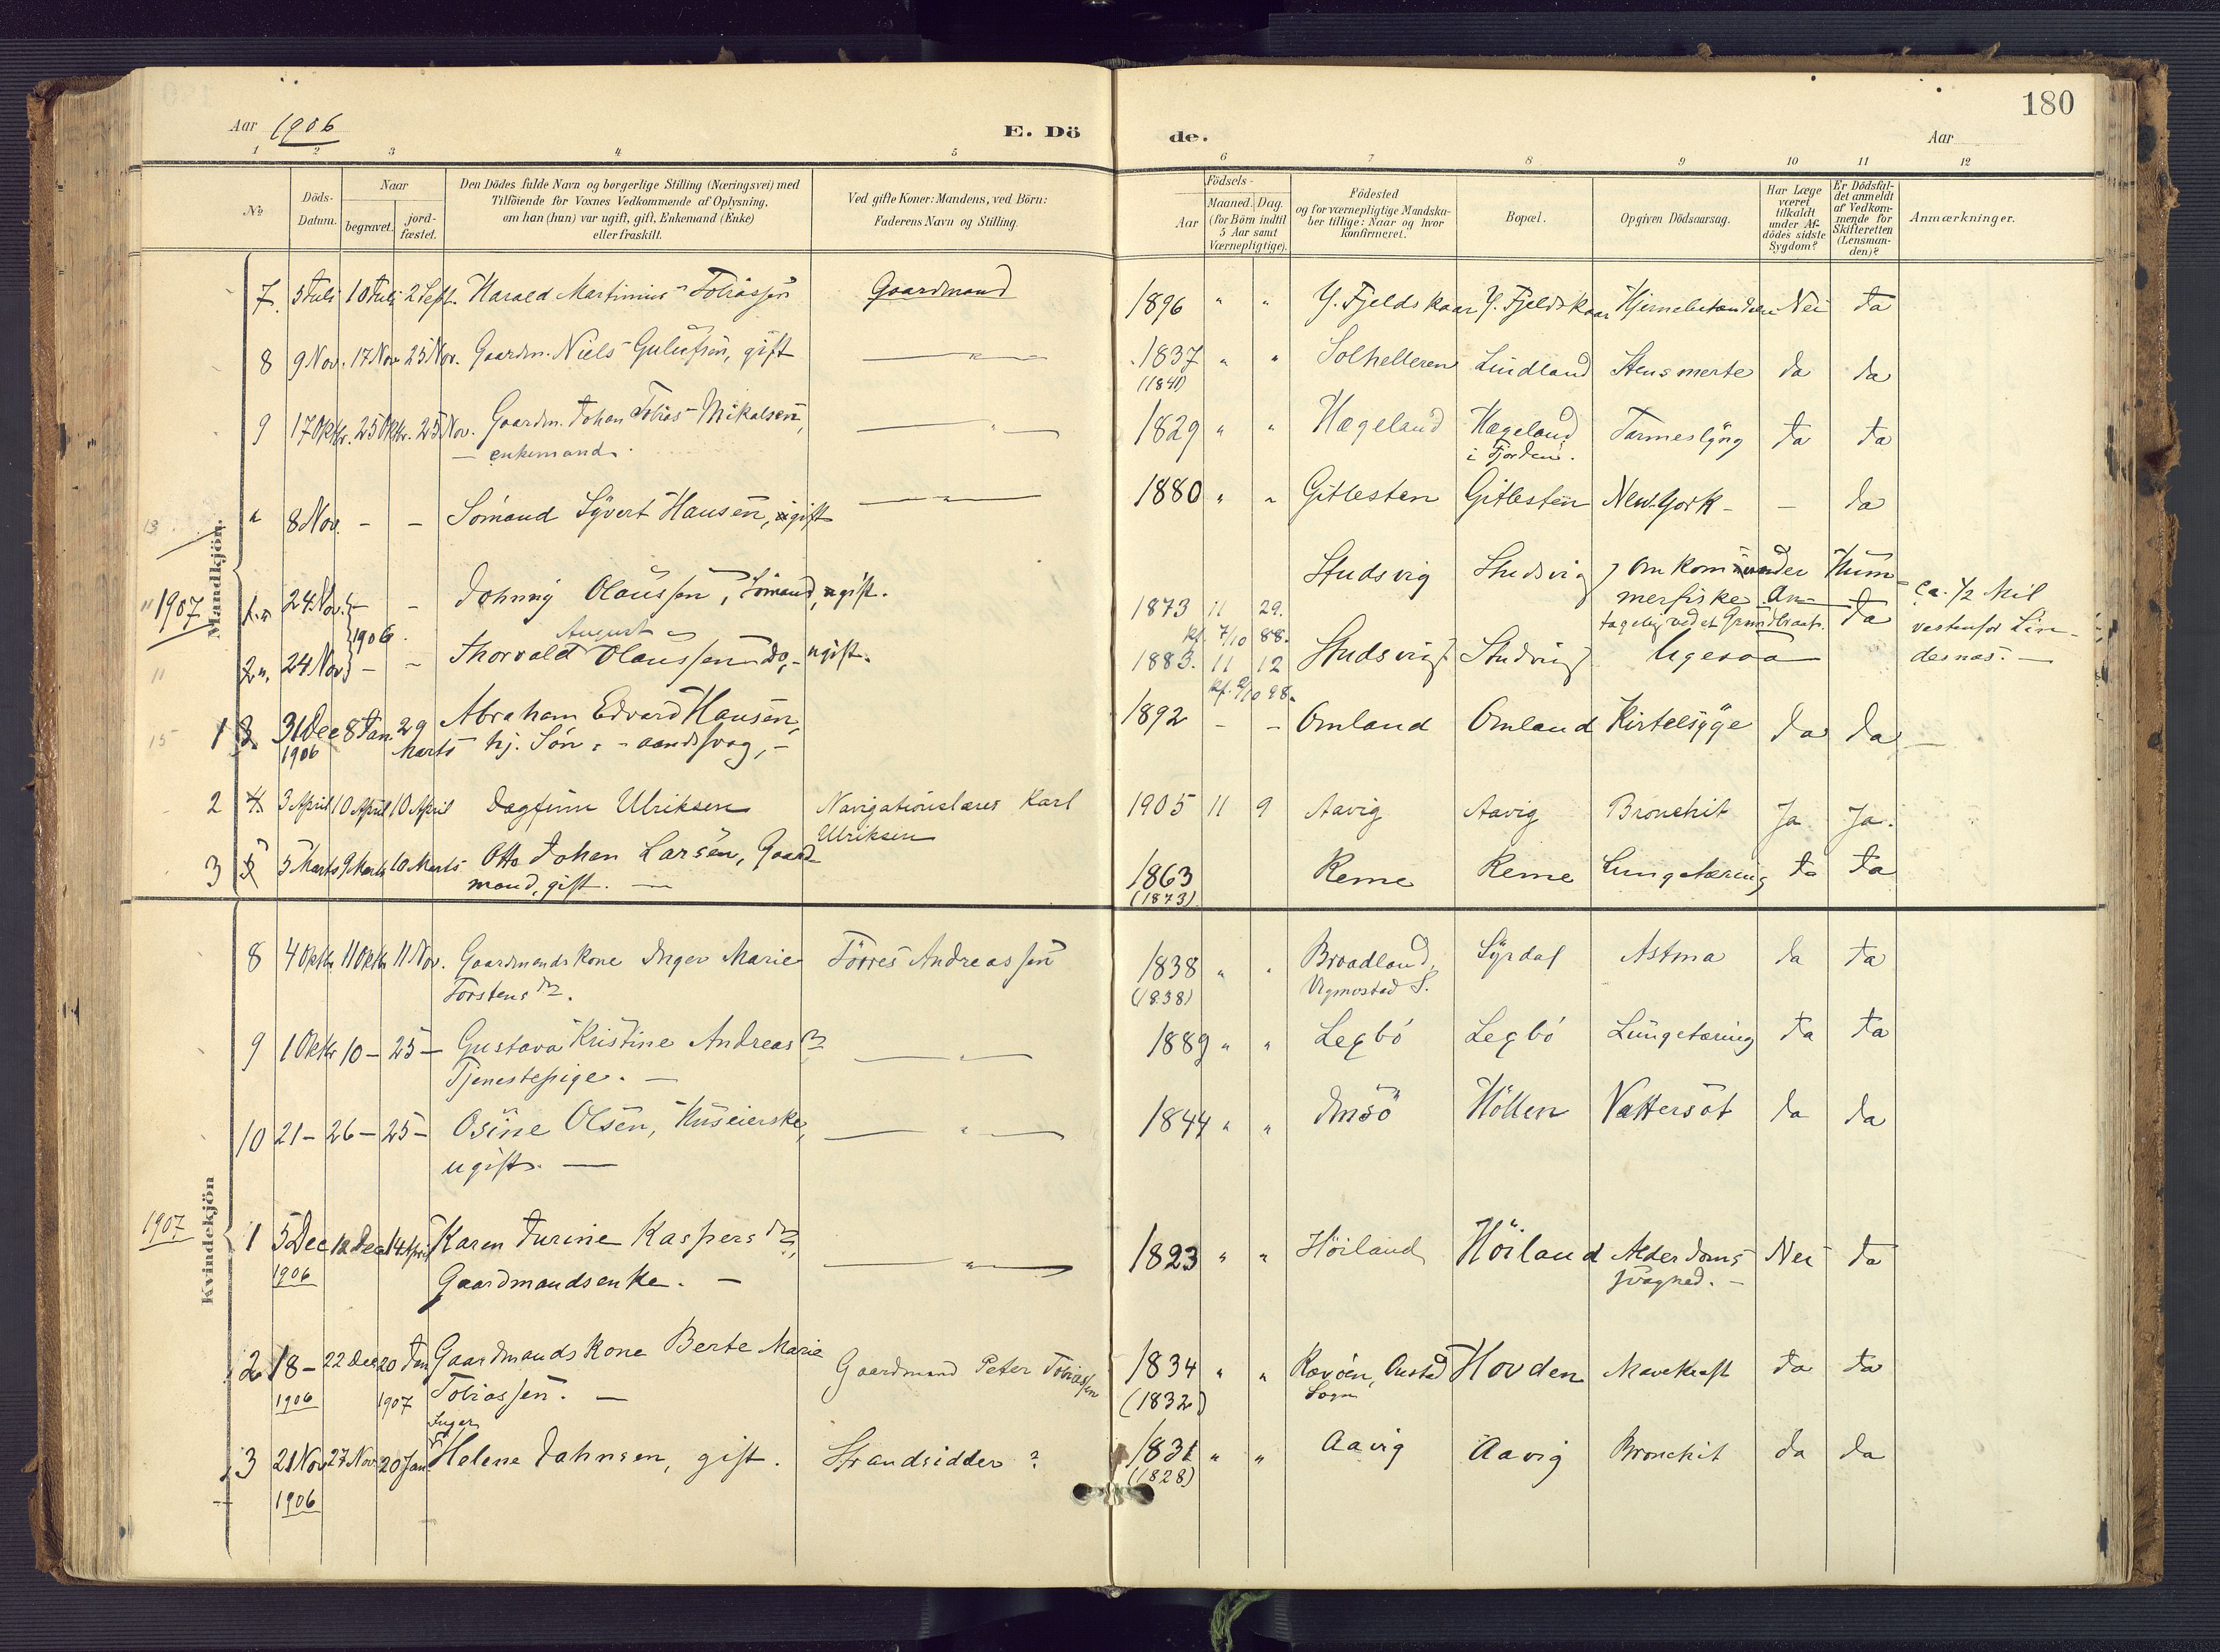 180
Aar 1906
E. Dö
de.
Aar
1 2 3 4 5 6 7 8 9 10 11 12
No
Döds-Datum.
Naar
begravet.
jord-fæstet.
Den Dödes fulde Navn og borgerlige Stilling (Næringsvei) med
Tilföiende for Voxnes Vedkommende af Oplysning,
om han (hun) var ugift, gift, Enkemand (Enke)
eller fraskilt.
Ved gifte Koner: Mandens, ved Börn:
Faderens Navn og Stilling.
Födsels-
Aar
Maaned. Dag.
(for Börn indtil
5 Aar samt
Værnepligtige).
Födested
og for værnepligtige Mandska-
ber tillige: Naar og hvor
konfirmeret.
Bopæl.
Opgiven Dödsaarsag.
Har Læge
været
tilkaldt
under Af-
dödes sidste
Sygdom?
Er Dödsfal-
det anmeldt
af Vedkom-
mende for
Skifteretten
(Lensman-
den)?
Anmærkninger.
Mandkjön.
7. 5 Juli 10 Juli 2 Sept. Harald Martinius Tobiassen Gaardmand 1896 " " Y. Fjeldskaar Y. Fjeldskaar Nei Ja
8 9 Nov. 17 Nov 25 Nov. Gaardm. Niels Gulufsen, gift — " — 1837 " " Solhelleren Lindland Stensmerte Ja Ja
(1841)
9 17 Oktbr. 25 Oktbr. 25 Nov. Gaardm. Johan Tobias Mikalsen, — " — 1829 " " Hægeland Hægeland Ja Ja
— enkemand. i Fjorden.
" 8 Nov. - - Sömand Syvert Hansen, ugift — " — 1880 " " Gitlesten Gitlesten New-York - - Ja
13
1907
1. " 24 Nov. - - Johnny Olaussen, Sömand, ugift. 1873 11 29. Studsvig Studsvig Omkom under Hum-
merfiske. An-
tagelig ved et Grundbraat. Ja
Ca. 1/2 Mil
vestenfor Lin-
desnæs. —
kf. 7/10 88.
1906.
August
2 ". 24 Nov. - - Thorvald Olaussen do, - ugift. 1883. 11 12 Studsvig Studsvig Ligesaa —
kf. 2/10 98.
15 1 3 31 Dec 8 Jan. 29 Abraham Edvard Hansen, 1892 - - Omland Omland Kirtelsyge Ja Ja —
1906 Marts hj. Sön, - aandssvag, -
2 4 3 April 10 April 10 April Dagfinn Ulriksen Navigationslærer Karl 1905 11 9 Aavig Aavig Bronchit Ja Ja.
Ulriksen
3 5 5 Marts 9 Marts 10 Marts Otto Johan Larsen, Gaard- 1863 Reme Reme Lungetæring Ja Ja
mand, gift. — (1873)
Kvindekjön
8 4 Oktbr 11 Oktbr 11 Nov. Gaardmands kone Inger Marie Törres Andreassen 1838 " " Braadland, Syrdal Astma Ja Ja
Torstensdtr. (1838) Vigmostad S.
9 1 Oktbr 10 - 25 - Gustava Kristine Andreasdtr — " — 1889 " " Legbö Legbö Lungetæring Ja Ja
Tjenestepige. —
10 21 - 26 - 25 - Osine Olsen, Huseierske, — " — 1844 " " Imsö Höllen Vattersot Ja Ja
ugift. —
1907
1 5 Dec 12 Dec 14 April Karen Turine Kaspersdtr, — " — 1823 " " Höiland Höiland Alderdoms- Nei Ja
1906 Gaardmandsenke. — svaghed. -
2 18 - 22 Dec 20 Jan Gaardmands kone Berte Marie Gaardmand Peter Tobiassen 1834 " " Ravöen, Hovden Mavekræft Ja Ja
1906 1907 Tobiassen. — (1832) Sogn
Inger
3 21 Nov 27 Nov 20 Jan Helene Jahnsen, gift. Strandsidder ? 1831 " " Aavig Aavig Bronchit Ja Ja
1906 (1828)